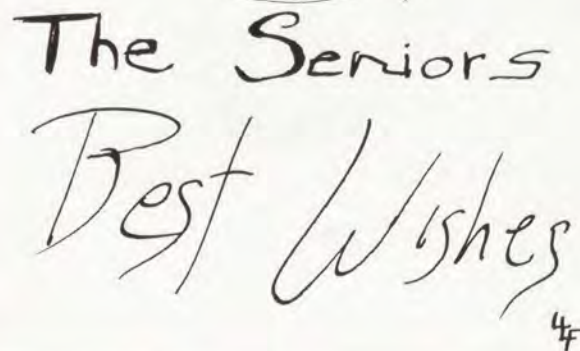 The Seniors
Best Wishes